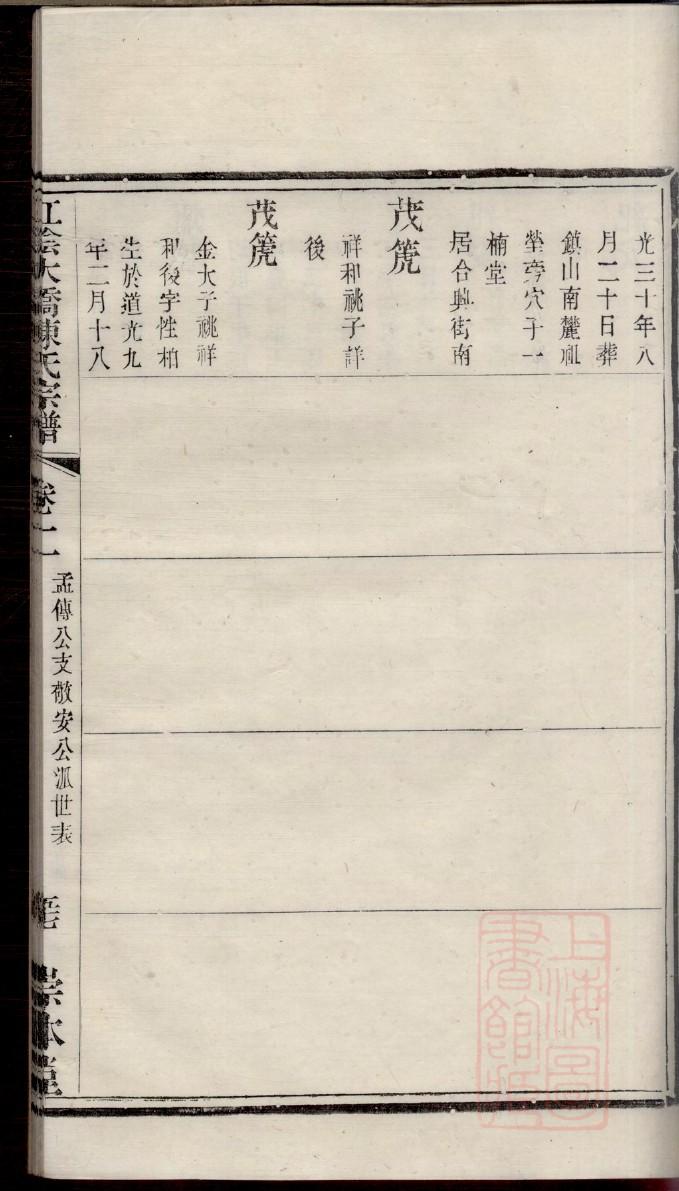 光三十年八
月二十日葬
鎮山南麓祖
塋旁穴子一
楠堂
居合興街南
茂箎
祥和祧子詳
後
茂箎
金大子祧祥
和後字性柏
生於道光九
年二月十八
江陰大橋陳氏宗譜
卷十一
孟傳公支敬安公派世表
宗本堂
上海圖書館藏